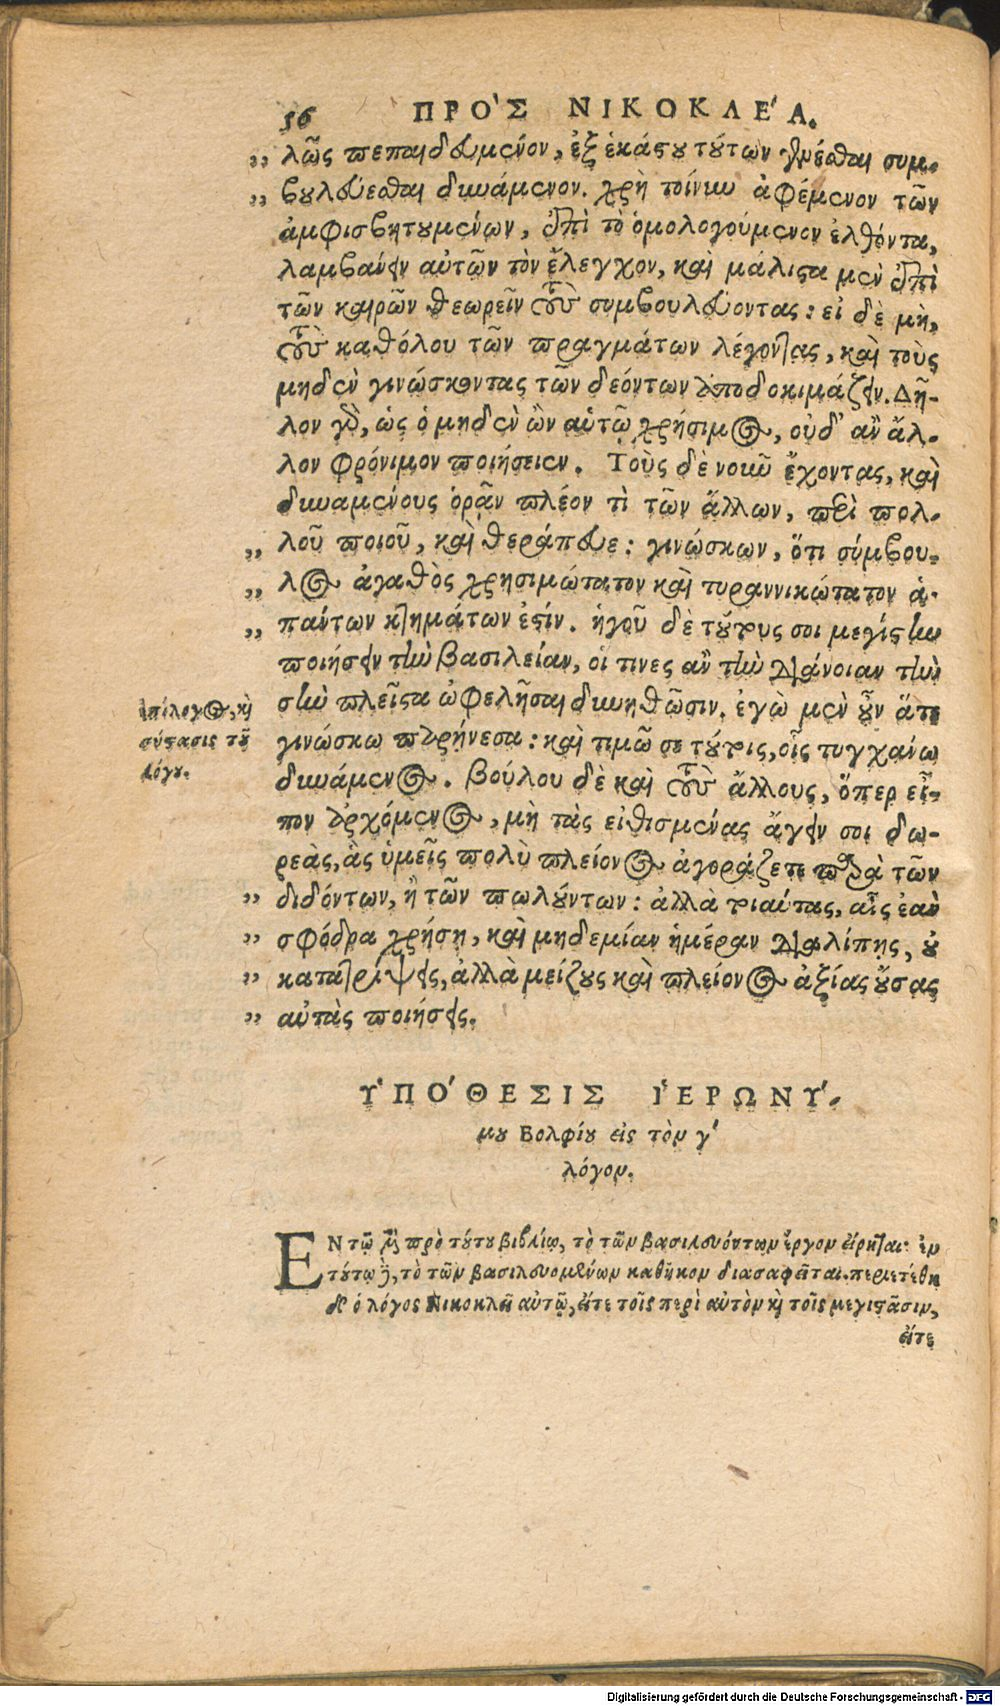 56 ΠΡΟ'Σ ΝΙΚΟΚΛΕ'Α.
„ λῶς πεπαιδευμένον, ἐξ ἑκάστου τούτων γενέσθαι συμ-
„ βουλεύεσθαι δυνάμενον. χρὴ τοίνυν ἀφέμενον τῶν
ἀμφισβητουμένων, ἐπὶ τὸ ὁμολογούμενον ἐλθόντα,
λαμβάνειν αὐτῶν τὸν ἔλεγχον, καὶ μάλιστα μὲν ἐπὶ
τῶν καιρῶν θεωρεῖν τοὺς συμβουλεύοντας: εἰ δὲ μὴ,
τοὺς καθόλου τῶν πραγμάτων λέγοντας, καὶ τοὺς
μηδὲν γινώσκοντας τῶν δεόντων ἀποδοκιμάζειν. Δῆ-
λον γὰρ, ὡς ὁ μηδὲν ὢν αὑτῷ χρήσιμος, οὐδ' ἂν ἄλ-
λον φρόνιμον ποιήσειεν. Τοὺς δὲ νοῦν ἔχοντας, καὶ
δυναμένους ὁρᾷν πλέον τὶ τῶν ἄλλων, περὶ πολ-
„ λοῦ ποιοῦ, καὶ θεράπευε: γινώσκων, ὅτι σύμβου-
„ λος ἀγαθὸς χρησιμώτατον καὶ τυραννικώτατον ἁ-
„ πάντων κτημάτων ἐστίν. ἡγοῦ δὲ τούτους σοι μεγίστην
ποιήσειν τὴν βασιλείαν, οἵ τινες ἂν τὴν διάνοιαν τὴν
σὴν πλεῖστα ὠφελῆσαι δυνηθῶσιν. ἐγὼ μὲν οὖν ἅτε
γινώσκω παρῄνεσα: καὶ τιμῶ σε τούτοις, οἷς τυγχάνω
δυνάμενος. βούλου δὲ καὶ τοὺς ἄλλους, ὅπερ εἶ-
πον ἀρχόμενος, μὴ τὰς εἰθισμένας ἄγειν σοι δω-
ρεὰς, ἃς ὑμεῖς πολὺ πλείονος ἀγοράζετε παρὰ τῶν
„ διδόντων, ἢ τῶν πωλούντων: ἀλλὰ τοιαύτας, αἷς ἐὰν
„ σφόδρα χρήσῃ, καὶ μηδεμίαν ἡμέραν διαλίπῃς, οὐ
„ κατατρίψεις, ἀλλὰ μείζους καὶ πλείονος ἀξίας οὔσας
„ αὐτὰς ποιήσεις.
ἐπίλογος, καὶ
σύστασις τοῦ
λόγου.
ΥΠΟ'ΘΕΣΙΣ ἹΕΡΩΝΥ'-
μου Βολφίου εἰς τὸν γ'
λόγον.
ΕΝ τῷ μὲν πρὸ τούτου βιβλίῳ, τὸ τῶν βασιλευόντων ἔργον εἴρηται: ἐν
τούτῳ δὲ, τὸ τῶν βασιλευομένων καθῆκον διασαφεῖται. περιετέθη
δὲ ὁ λόγος Νικοκλεῖ αὐτῷ, εἴτε τοῖς περὶ αὐτὸν καὶ τοῖς μεγιστᾶσιν,
εἴτε
Digitalisierung gefördert durch die Deutsche Forschungsgemeinschaft - DFG